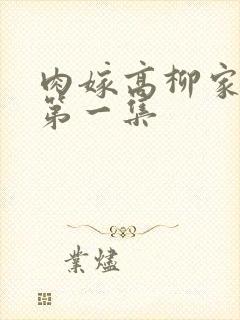 肉嫁高柳家
第一集
業燼